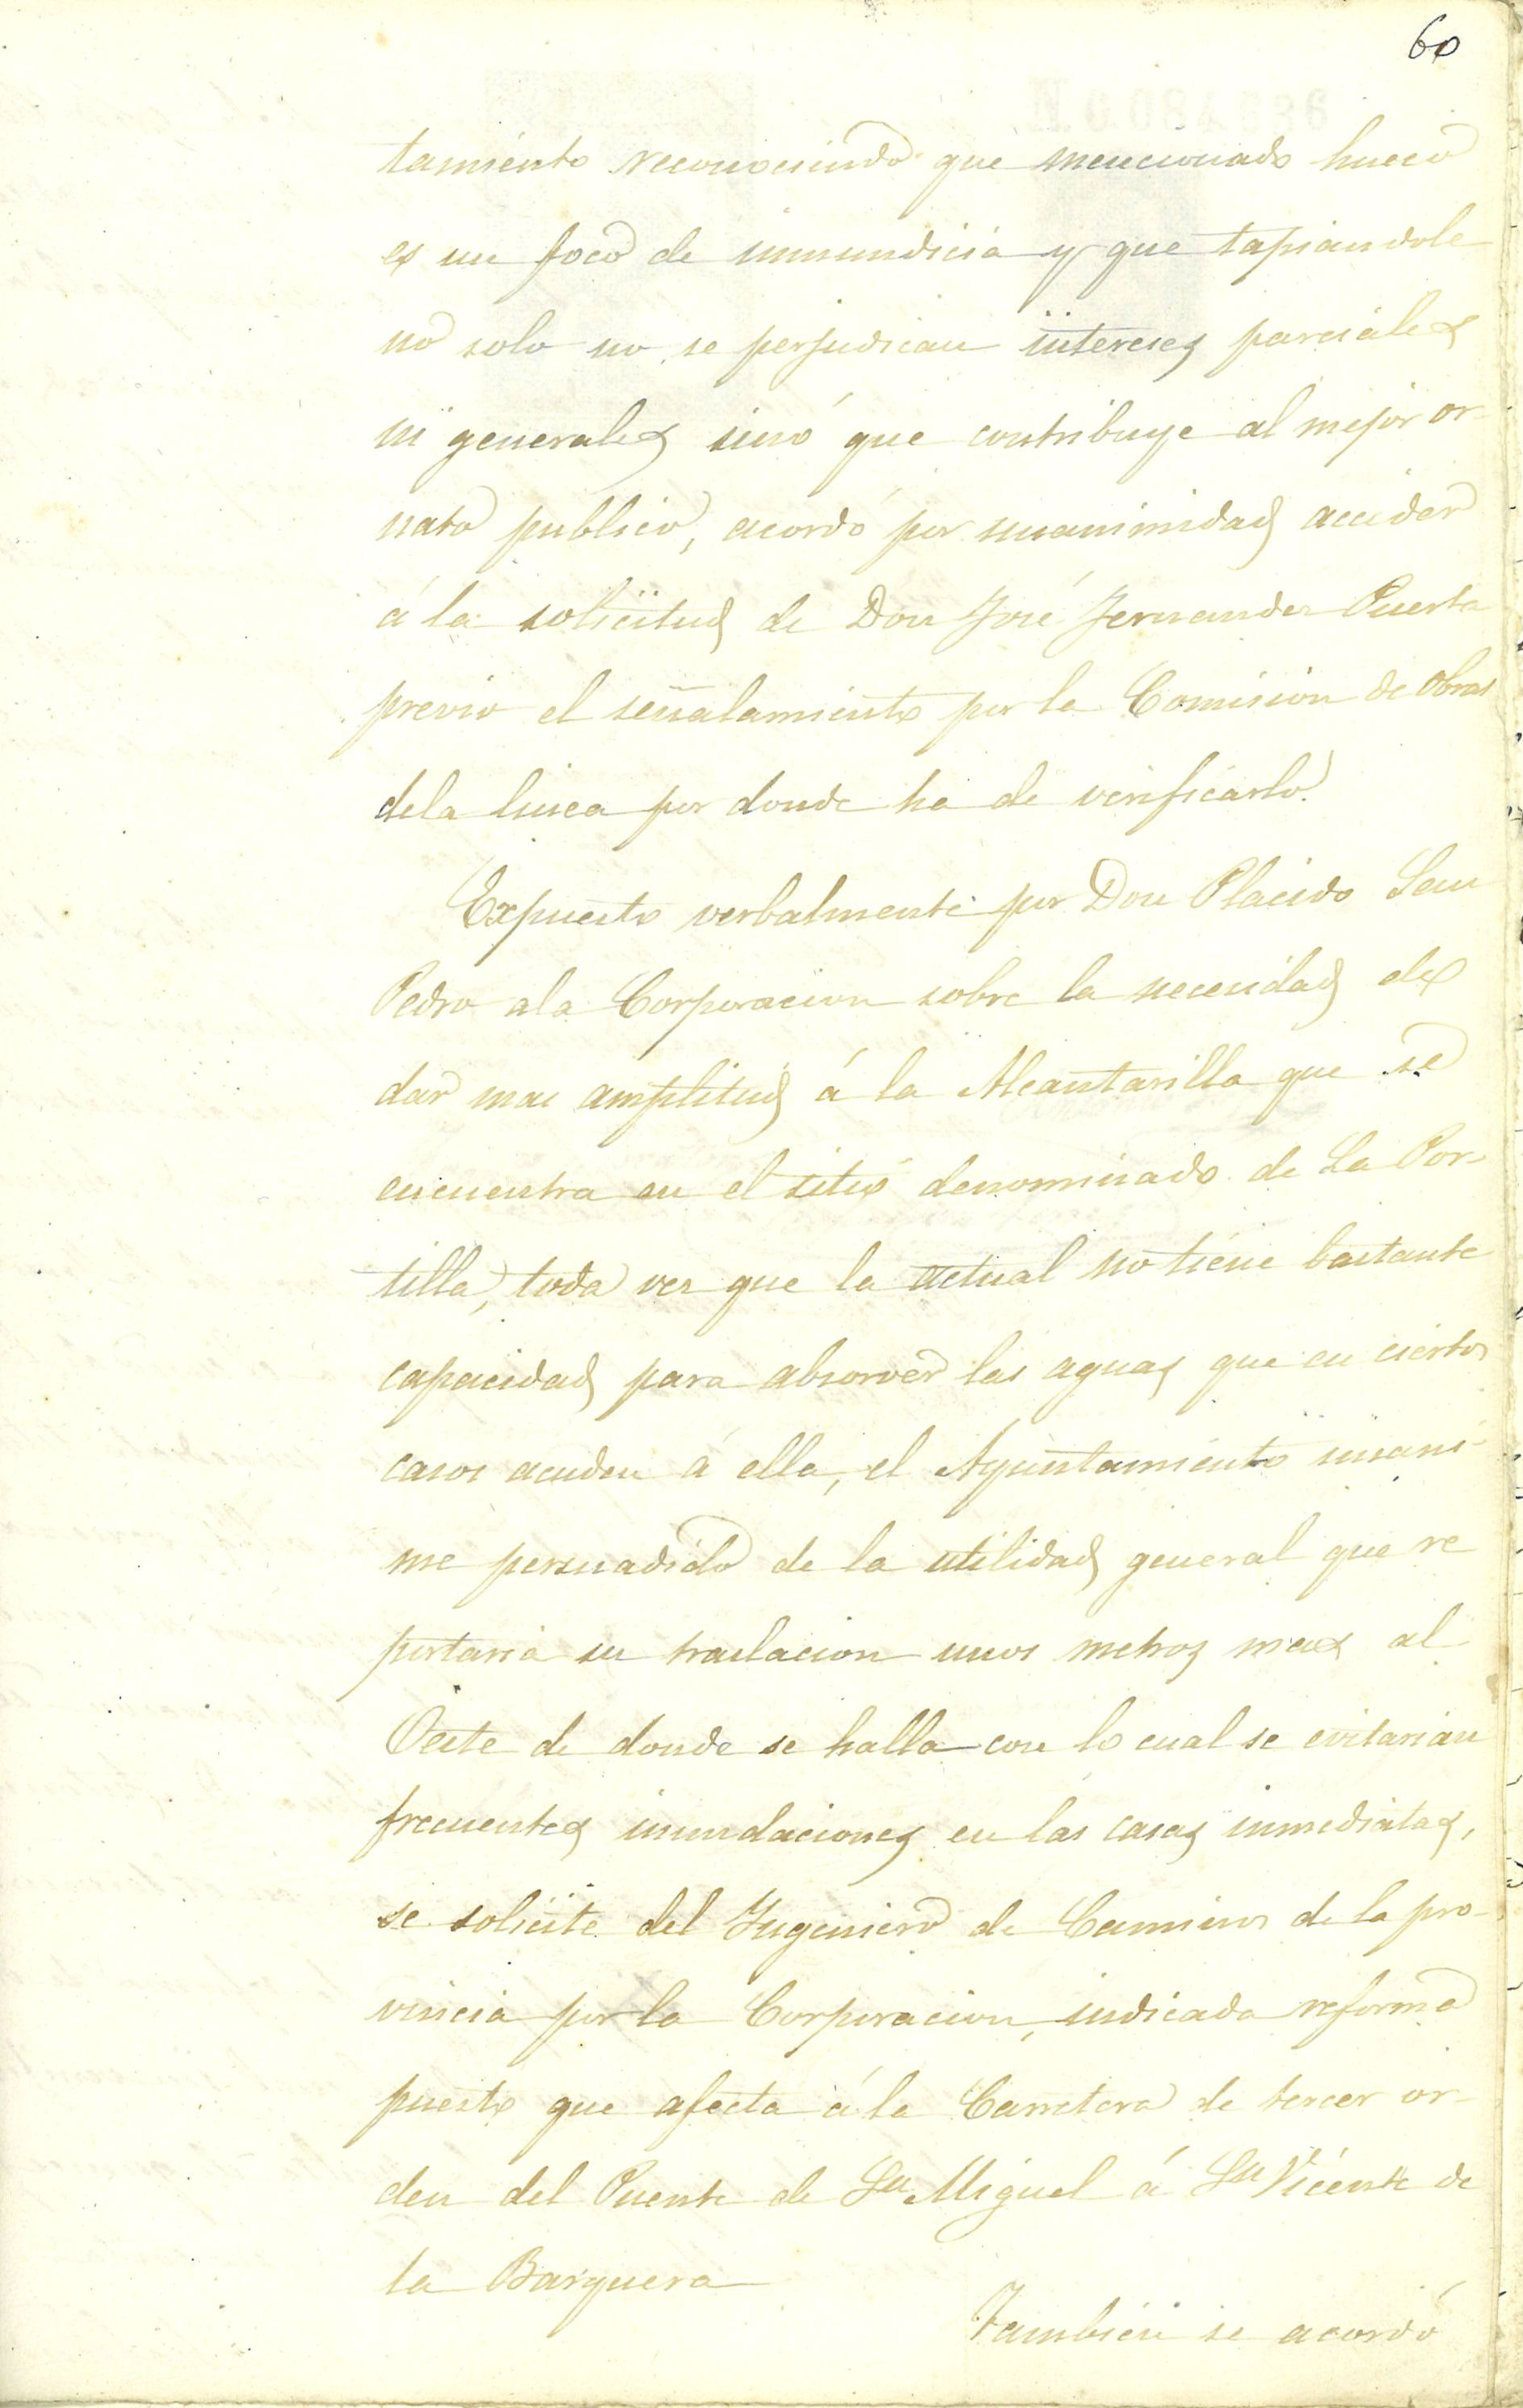 60
N.0.084.636
tamiento reconociendo que mencionado hueco
es un foco de inmundicia y que tapiandole
no solo no se perjudican intereses parciales
ni generales sinó que contribuye al mejor or-
nato publico, acordó por unanimidad acceder
á la solicitud de Don José Fernandez Puerta
previo el señalamiento por la Comision de Obras
dela linea por donde ha de verificarlo.
Expuesto verbalmente por Don Placido San
Pedro ala Corporacion sobre la necesidad de
dar mas amplitud á la Alcantarilla que se
encuentra en el sitio denominado de La Por-
tilla, toda vez que la actual no tiene bastante
capacidad para absorver las aguas que en ciertos
casos acuden á ella, el Ayuntamiento unani-
me persuadido de la utilidad general que re
portaria su traslacion unos metros mas al
Oeste de donde se halla con lo cual se evitarian
frecuentes inundaciones en las casas inmediatas,
se solicite del Yngeniero de Caminos de la pro-
vincia por la Corporacion, indicada reforma
puesto que afecta á la Carretera de tercer or-
den del Puente de Sn Miguel á Sn Vicente de
la Barquera
Tambien se acordó